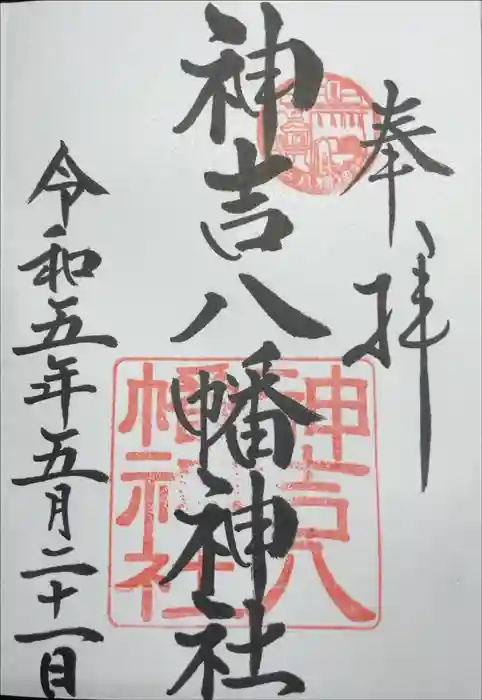 奉拝
神吉八幡神社
令和五年五月二十一日
神吉八
幡神社